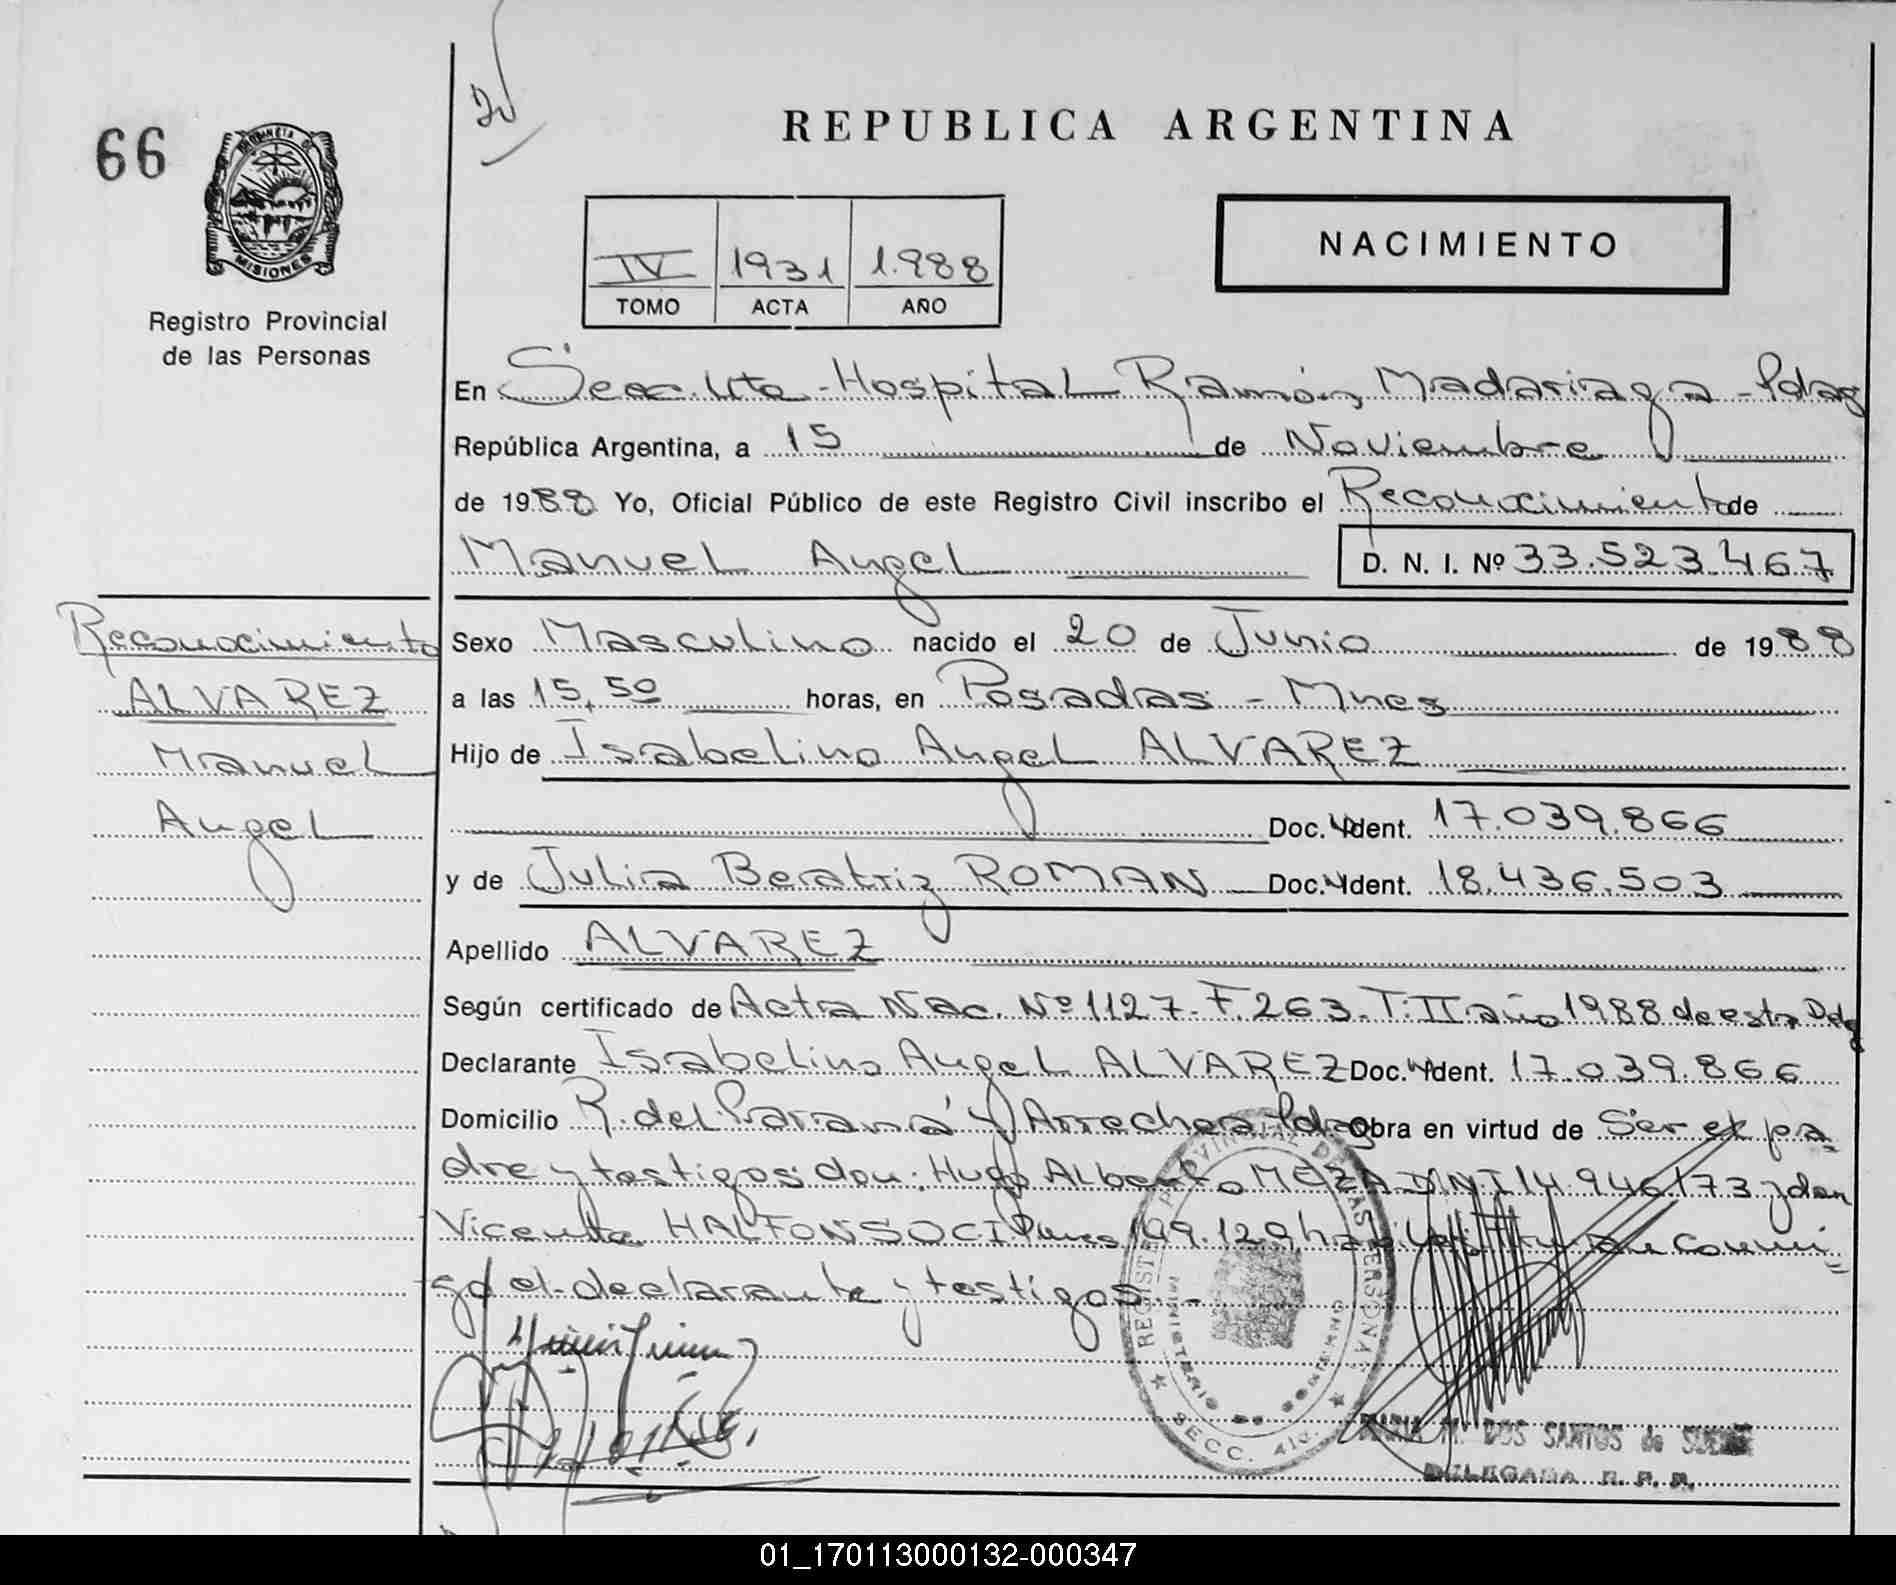 66
REPUBLICA ARGENTINA
PROVINCIA DE MISIONES
Registro Provincial
de las Personas
IV 1931 1.988
TOMO ACTA AÑO
NACIMIENTO
En Secc. 4ta - Hospital Ramón Madariaga - Pdas
República Argentina, a 15 de Noviembre
de 1988 Yo, Oficial Público de este Registro Civil inscribo el Reconocimiento de
Manuel Angel D. N. I. Nº 33.523.467
Reconocimiento
ALVAREZ
Manuel
Angel
Sexo Masculino nacido el 20 de Junio de 1988
a las 15,50 horas, en Posadas - Mnes
Hijo de Isabelino Angel ALVAREZ
Doc. Ident. 17.039.866
y de Julia Beatriz ROMAN Doc. Ident. 18.436.503
Apellido ALVAREZ
Según certificado de Acta Nac. Nº 1127 - F. 263 - T: II año 1988 de esta Deleg
Declarante Isabelino Angel ALVAREZ Doc. Ident. 17.039.866
Domicilio R. del Paraná y Arrechea Pdas Obra en virtud de Ser el pa
dre y testigos: don: Hugo Alberto MEZA DNI 14.946.173 y don
Vicente HALFONSO CI Mnes 199.129 conmi
go el declarante y testigos
REGISTRO PROVINCIAL DE LAS PERSONAS
MINISTERIO DE GOBIERNO
SECC. 4ta.
M. DOS SANTOS de
DELEGADA R. P. P.
01_170113000132-000347